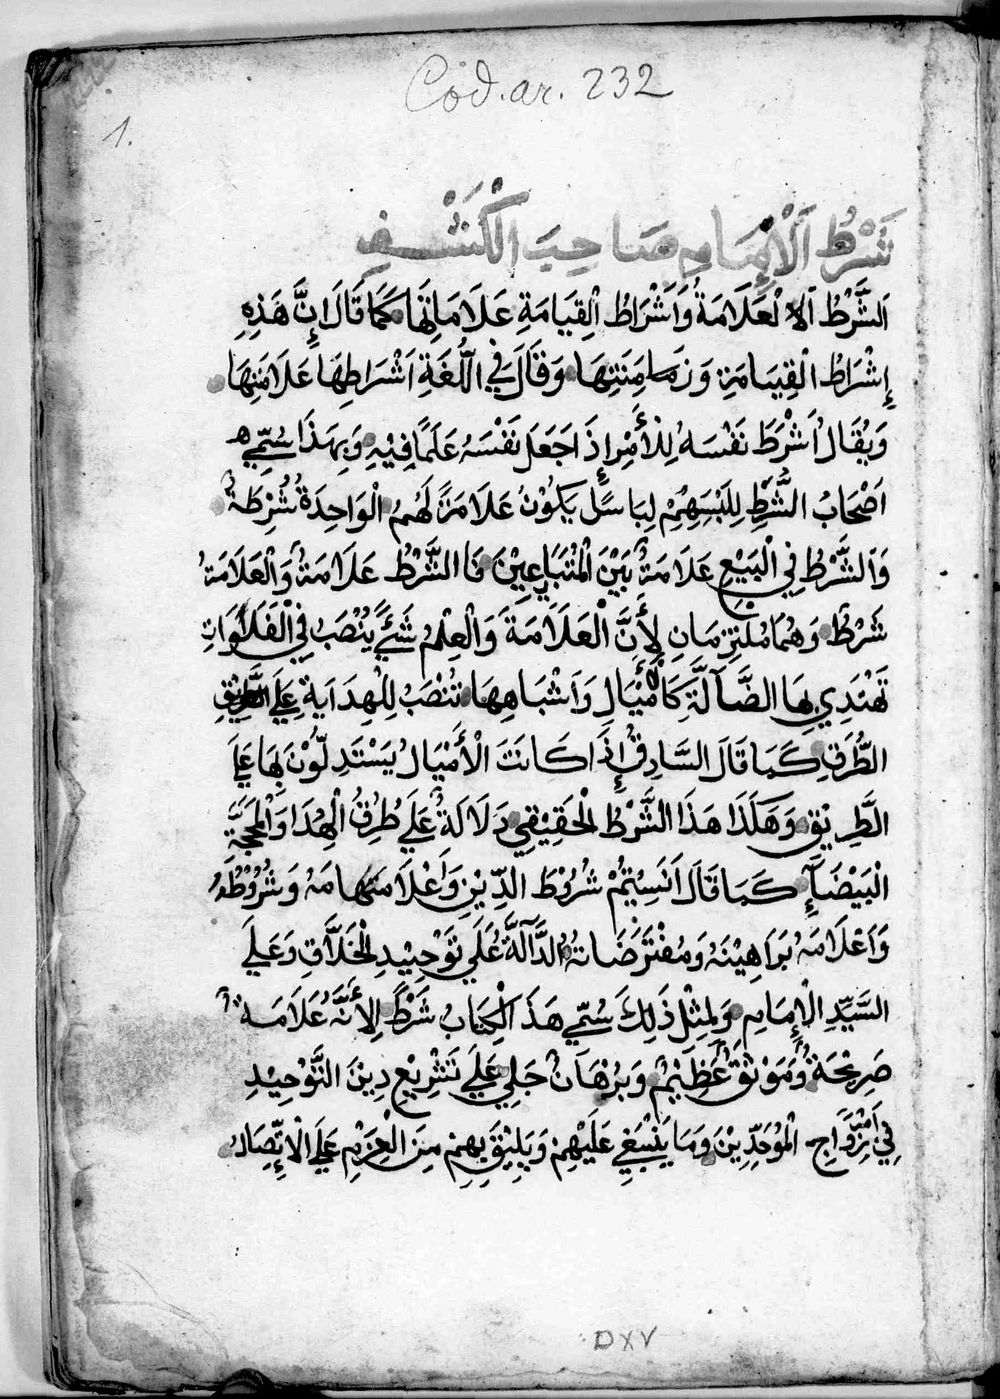 Cod. ar. 232
1.
شَرْطُ اَلْإِمَامِ صَاحِبَ الْكَشْفِ
اَلشَّرْطُ الْعَلَامَةُ وَاَشْرَاطُ الْقِيَامَةِ عَلَامَاتِهَا كَمَا قَالَ إِنَّ هَذِهِ
إِشْرَاطُ الْقِيَامَةِ وَقَالَ فِي اللُّغَةِ اَشْرَاطِهَا عَلَامَتِهَا
وَيُقَالُ اَشْرَطَ نَفْسَهُ لِلْأَمْرِ إِذَ اجَعَلَ نَفْسَهُ عَلَمًا فِيْهِ وَبِهَذَا سُمِّي
اَصْحَابُ الشُّرَطِ لِلَبْسِهِمْ لِبَاسًا يَكُوْنُ عَلَامَةً لَهُمُ الْوَاحِدَةُ شُرْطَةٌ
وَاَلشَّرْطُ فِي الْبَيْعِ عَلَامَةٌ بَيْنَ الْمُتَبَايِعِيْنَ فَا الشَّرْطُ عَلَامَةُ وَالْعَلَامَةُ
شَرْطٌ وَهُمَا مُلْتَزِمَانِ لِأَنَّ الْعَلَامَةَ وَالْعِلْمُ شَئٌ يُنْصَبُ فِي الْفَلَوَاتِ
تَهْتَدِي بِهَا الضَّآلَّةِ كَالْأَمْيَالِ وَاَشْبَاهِهَا تُنْصَبُ لِلْهِدَايَةِ عَلَي
الطُّرُقِ كَمَا قَالَ السَّادِقُ إِذَا كَانَتَ الْأَمْيَالُ يَسْتَدِلُّوْنَ بِهَا عَلَي
الطَّرِيْقِ وَهَكَذَا هَذَا الشَّرْطُ الْحَقِيْقِي دَلَالَةٌ عَلَي طُرُقُ الْهُدَا وَالْمَحَجَّةِ
الْبَيْضَآءِ كَمَا قَالَ اَنَسِيْتُمْ شُرُوْطَ الدِّيْنِ وَاَعْلَامَهُ وَشُرُوْطُهُ
وَاَعْلَامَهُ بَرَاهِيْنَهُ وَمُفْتَرَضَاتُهُ الدَّآلَّةُ عَلَي تَوْحِيْدِ الْخَلَّاقِ وَعَلَي
السَّيِّدِ الْإِمَامِ وَلِمِثْلِ ذَلِكَ سُمِّي هَذَ الْكِتَابُ شَرْطً لِأَنَّهُ عَلَامَه
صَرِيْحَةٌ وَمَوْثَقٌ عَظِيْمٌ وَبُرْهَانٌ جَلِي عَلَي تَشْرِيْعِ دِيْنَ التَّوْحِيْدِ
فِي اَمْرِ زَوَّاجِ الْمُوَحِّدِيْنَ وَمَا يَنْبَغِي عَلَيْهِمْ وَيَلِيْقَ بِهِمْ مِنَ الْعِزَمِ عَلَي الْاِتِّصَالُ
DXV